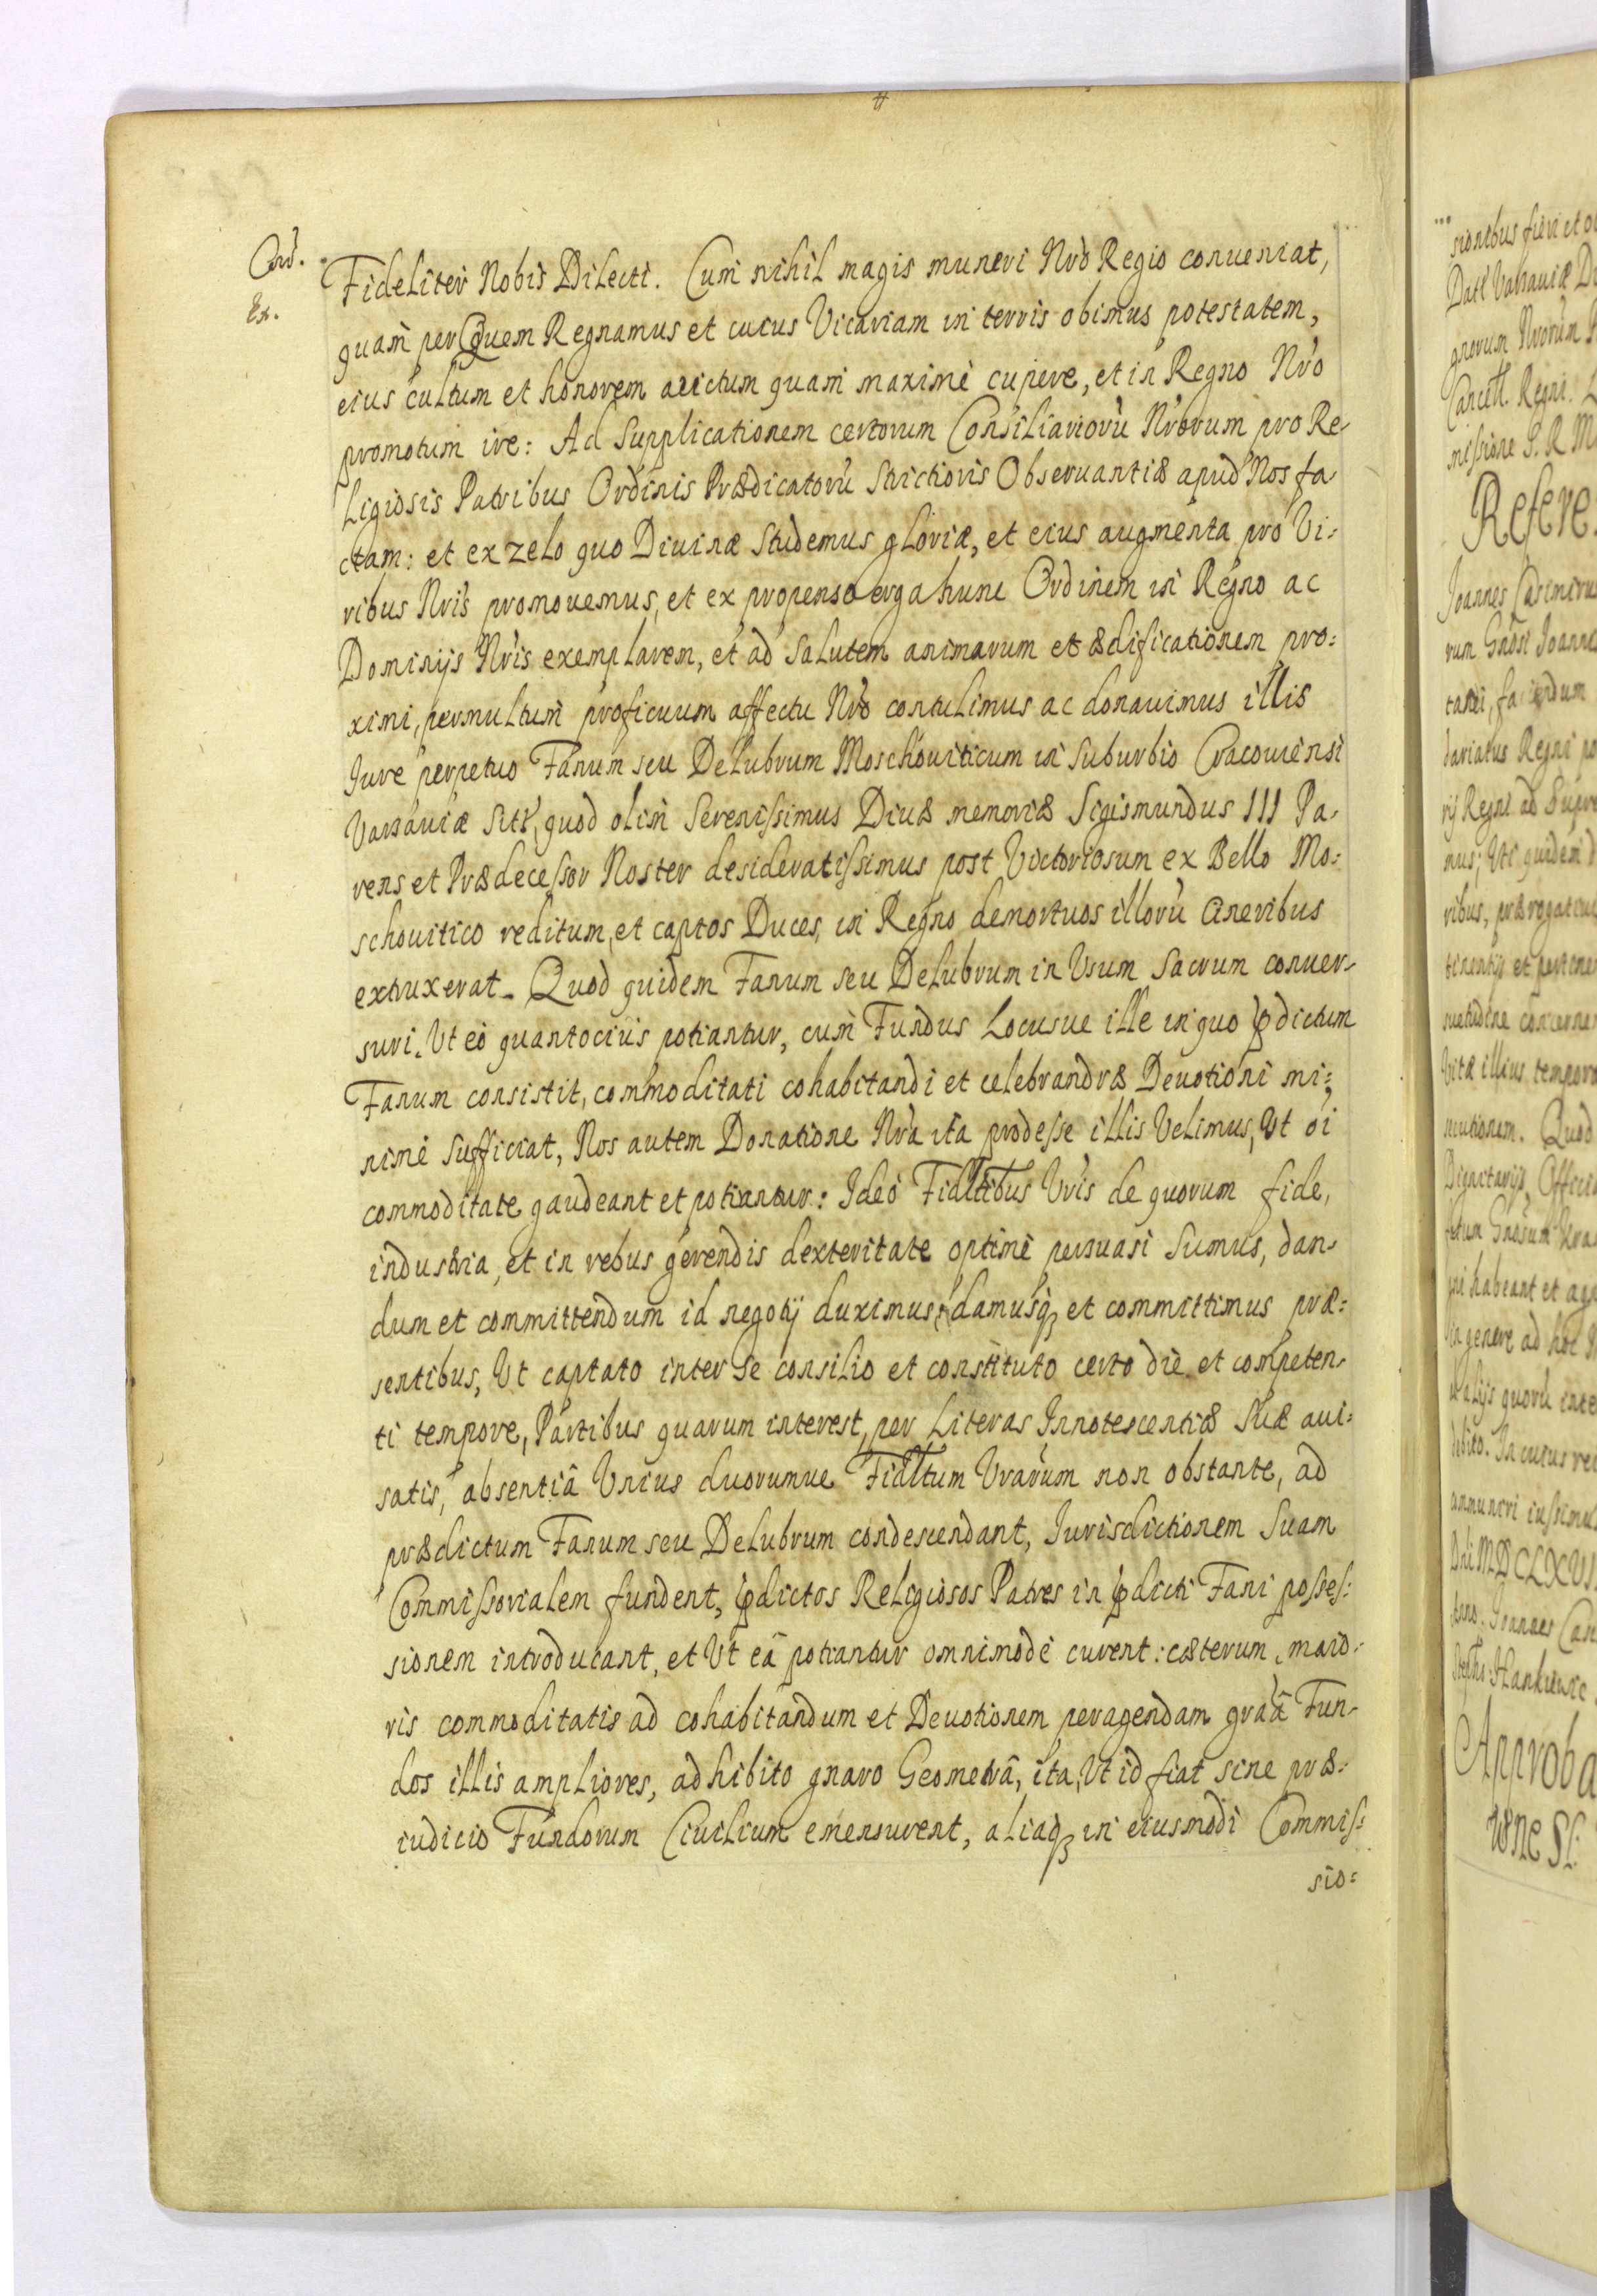 Cord.
Ex.
Fideliter Nobis Dilecti. Cum nihil magis muneri Nrõ Regio conueniat,
quam per Quem Regnamus et cuius Vicariam in terris obimus potestatem,
eius cultum et honorem auctum quam maximè cupere, et in Regno Nrõ
promotum ire: Ad Supplicationem certorum Consiliariorũ Nrõrum pro Re-
ligiosis Patribus Ordinis Prædicatorũ Strictioris Obseruantiæ apud Nos fa-
ctam: et ex zelo quo Diuinæ Studemus gloriæ, et eius augmenta pro Vi-
ribus Nrĩs promouemus, et ex propenso erga hunc Ordinem in Regno ac
Dominijs Nrĩs exemplarem, et ad Salutem animarum et ædificationem pro:
ximi, permultum proficuum affectu Nrõ contulimus ac donauimus illis
Jure perpetuo Fanum seu Delubrum Moschouiticum in Suburbio Cracouiensi
Varsauiæ Sitũ, quod olim Serenissimus Diuæ memoriæ Sigismundus III Pa-
rens et Prædecessor Noster desideratissimus post Victoriosum ex Bello Mo:
schouitico reditum, et captos Duces, in Regno demortuos illorũ Cineribus
extruxerat. Quod quidem Fanum seu Delubrum in Usum Sacrum conuer-
suri. Ut eò quantocius potiantur, cum Fundus Locusue ille in quo p̃dictum
Fanum consistit, commoditati cohabitandi et celebrandæ Deuotioni mi:
nimè Sufficiat, Nos autem Donatione Nrã ita prodesse illis Velimus, Ut oĩ
commoditate gaudeant et potiantur: Ideò Fidltĩbus Vrĩs de quorum fide,
industria, et in rebus gerendis dexteritate optimè persuasi Sumus, dan-
dum et committendum id negotij duximus, damusq; et committimus præ:
sentibus, Ut captato inter Se consilio et constituto certo die et competen-
ti tempore, Partibus quarum interest, per Literas Innotescentiæ Suæ aui:
satis, absentiâ Unius duorumue Fidltum Vrarum non obstante, ad
prædictum Fanum seu Delubrum condescendant, Jurisdictionem Suam
Commissorialem fundent, p̃dictos Religiosos Patres in p̃dicti Fani posses:
sionem introducant, et Ut eâ potiantur omnimodè curent: cæterum, maio:
ris commoditatis ad cohabitandum et Deuotionem peragendam grãâ Fun-
dos illis ampliores, adhibito gnaro Geometrâ, ita, Ut id fiat sine præ:
iudicio Fundorum Ciuilium emensurent, aliaq; in eiusmodi Commis:
sio:
sionibus fieri et
Datt Varsauiæ
gnorum Nrõrum
Cancell. Regni.
missione S. R. M
Refere
Joannes Casimirus
Approba